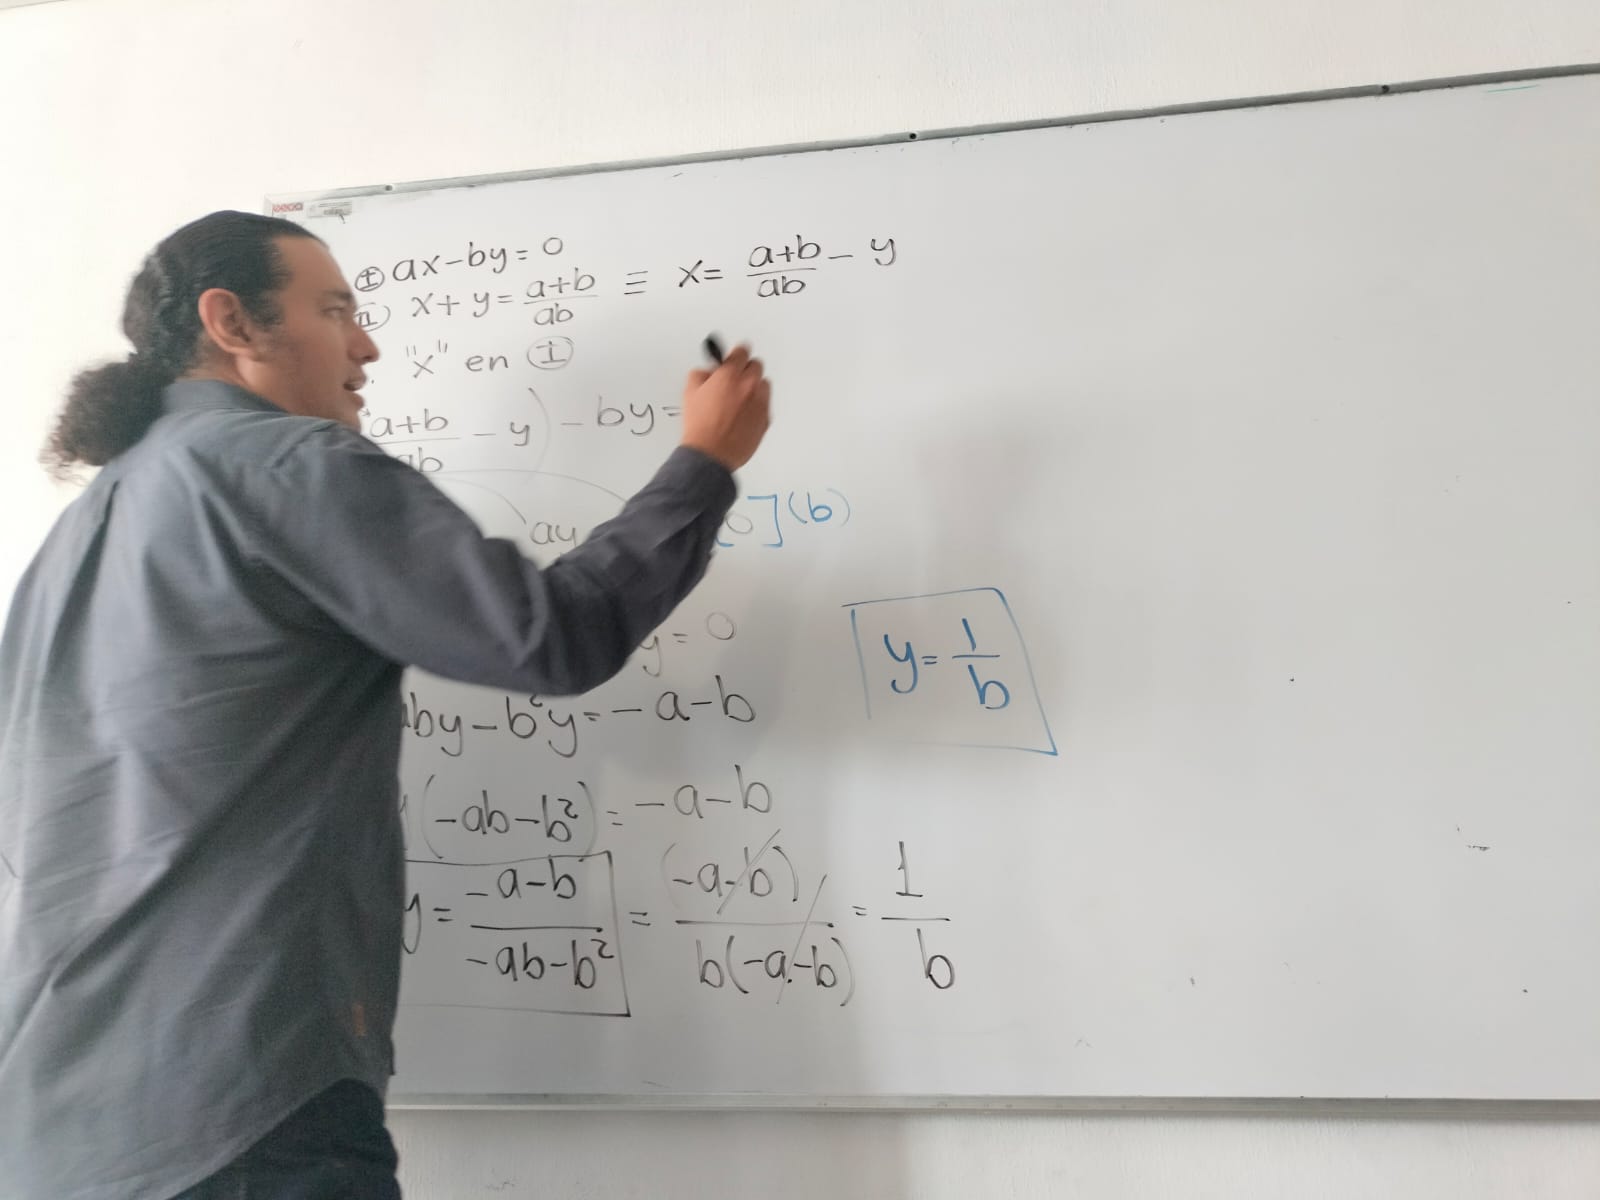 Ⓘ ax-by=0
ⒾⒾ x+y= a+b/ab ≡ x= a+b/ab - y
"x" en Ⓘ
a+b/ab - y) - by=
ay 0](b)
y=0
aby-b²y=-a-b
y=1/b
(-ab-b²)=-a-b
y= -a-b/-ab-b² = (-a-b)/b(-a-b) = 1/b